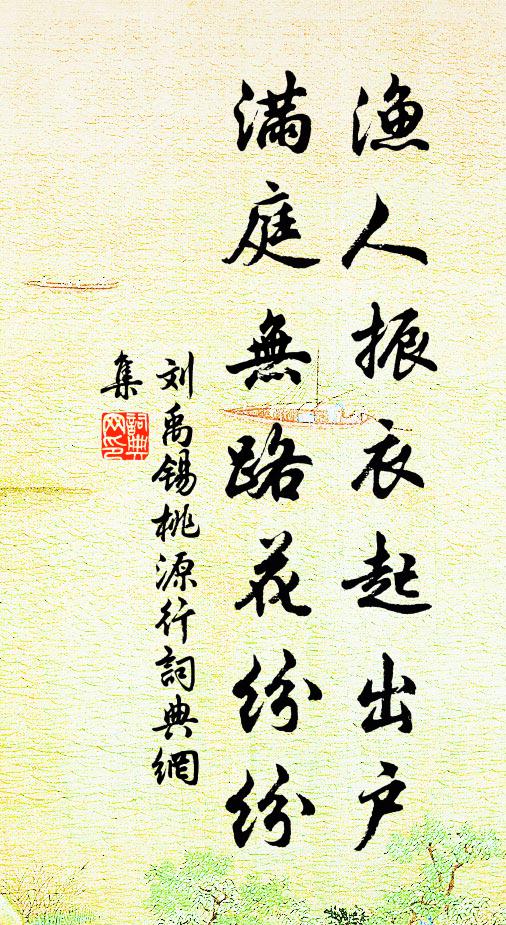 渔人振衣起出户
满庭無路花纷纷
刘禹锡桃源行詞典網
集
詞典
网印